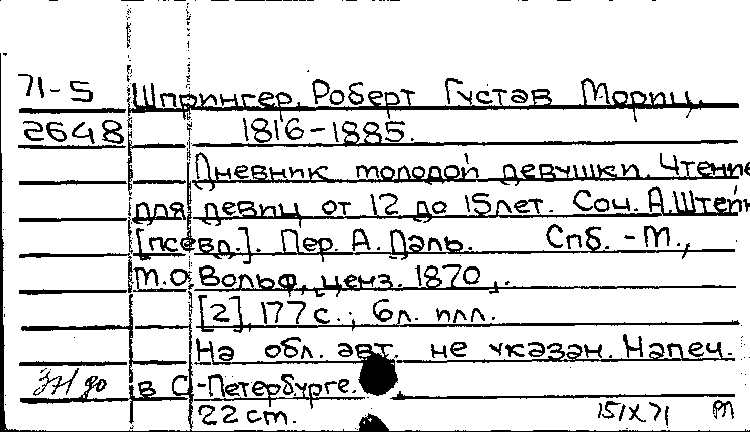 71-5 Шпрингер, Роберт Густав Мориц,
2648 1816-1885.
Дневник молодой девушки. Чтение
для девиц от 12 до 15 лет. Соч. А. Штейн
[псевд.]. Пер. А. Даль. Спб. - М.,
М.О. Вольф, ценз. 1870,.
[2], 177 с.; 6 л. илл.
На обл. авт. не указан. Напеч.
в С.-Петербурге.
22 cm. 151X71 РЛ